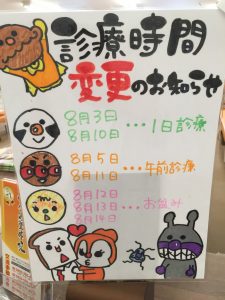 診療時間
変更のお知らせ
8月3日
8月10日 ・・・1日診療
8月5日
8月11日 ・・・午前診療
8月12日
8月13日 ・・・お盆休み
8月14日